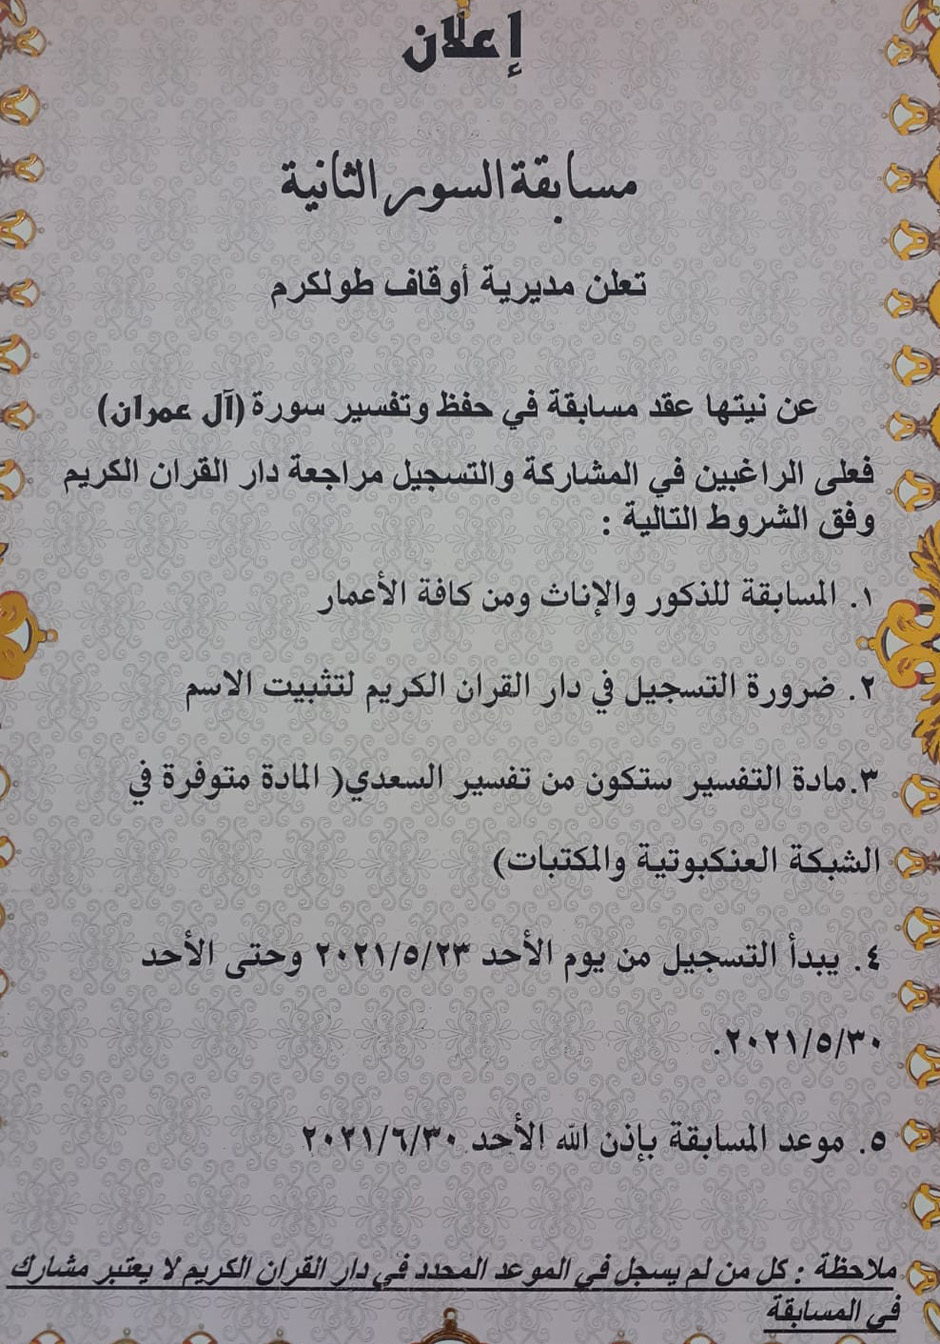 إعلان
مسابقة السور الثانية
تعلن مديرية أوقاف طولكرم
عن نيتها عقد مسابقة في حفظ وتفسير سورة (آل عمران)
فعلى الراغبين في المشاركة والتسجيل مراجعة دار القران الكريم
وفق الشروط التالية :
١. المسابقة للذكور والإناث ومن كافة الأعمار
٢. ضرورة التسجيل في دار القران الكريم لتثبيت الاسم
٣.مادة التفسير ستكون من تفسير السعدي( المادة متوفرة في
الشبكة العنكبوتية والمكتبات)
٤. يبدأ التسجيل من يوم الأحد ٢٠٢١/٥/٢٣ وحتى الأحد
٢٠٢١/٥/٣٠.
٥. موعد المسابقة بإذن الله الأحد ٢٠٢١/٦/٣٠
ملاحظة : كل من لم يسجل في الموعد المحدد في دار القران الكريم لا يعتبر مشارك
في المسابقة